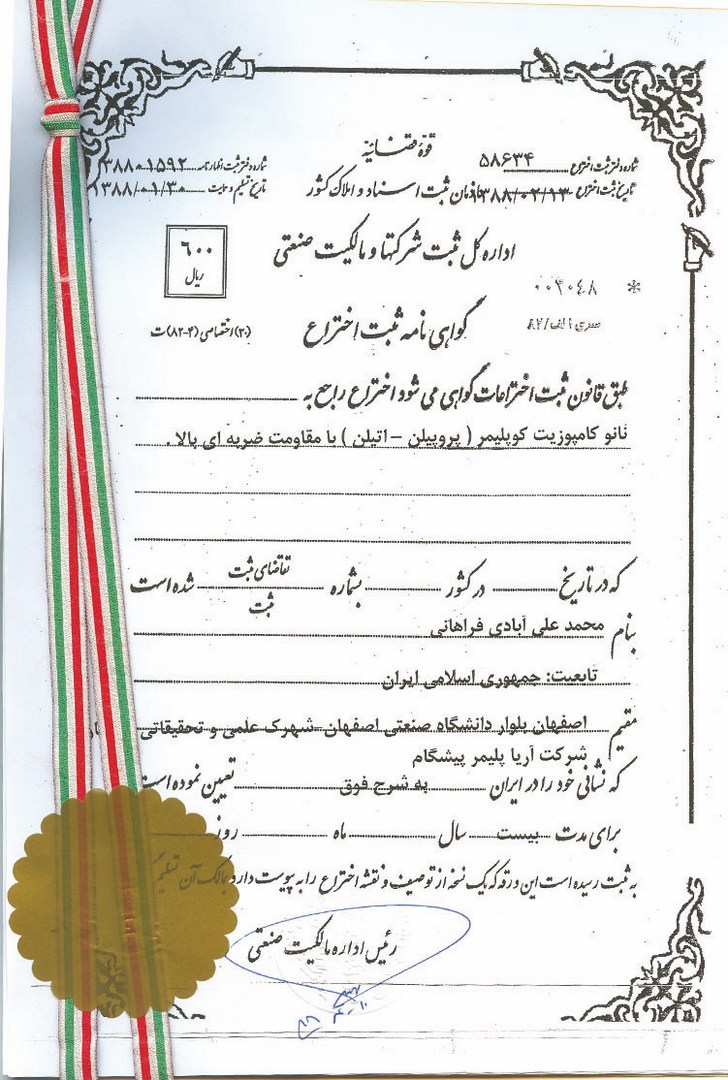 قوۀ قضائیّه
شماره دفتر ثبت اختراع ۵۸۶۳۴
شماره دفتر ثبت اظهارنامه ۳۸۸۰۱۵۹۲
تاریخ ثبت اختراع ۱۳۸۸/۰۲/۱۳
سازمان ثبت اسناد و املاک کشور
تاریخ تسلیم و ۱۳۸۸/۰۱/۳۰
اداره کل ثبت شرکتها و مالکیت صنعتی
۶۰۰
ریال
۰۰۲۰۴۸ *
سری الف/۸۲
گواهی نامه ثبت اختراع
(۲۰) اختصاصی (۴-۸۲) ت
طبق قانون ثبت اختراعات گواهی می شود اختراع راجع به
نانو کامپوزیت کوپلیمر ( پروپیلن – اتیلن ) با مقاومت ضربه ای بالا .
که در تاریخ در کشور بشماره تقاضای ثبت شده است
ثبت
بنام محمد علی آبادی فراهانی
تابعیت: جمهوری اسلامی ایران
مقیم اصفهان بلوار دانشگاه صنعتی اصفهان شهرک علمی و تحقیقاتی
شرکت آریا پلیمر پیشگام
که نشانی خود را در ایران به شرح فوق تعیین نموده است
برای مدت بیست سال ماه روز
به ثبت رسیده است این ورقه که یک نسخه از توصیف و نقشه اختراع را به پیوست دارد بمالک آن تسلیم
رئیس اداره مالکیت صنعتی